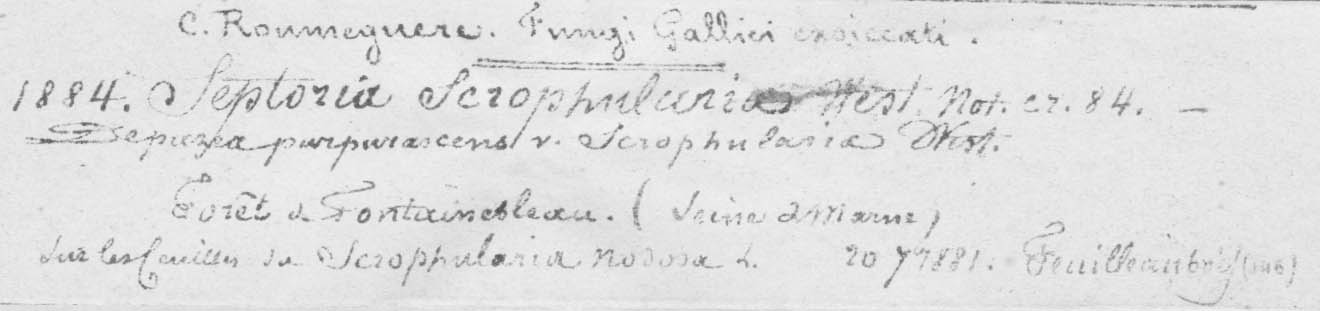 C. Roumeguere. Fungi Gallici exsiccati.
1884. Septoria Scrophulariae West. Not. cr. 84. —
= Depazea purpurascens v. Scrophularia West.
Forêt de Fontainebleau. (Seine & Marne)
Sur les feuilles du Scrophularia nodosa L. 20 7 1881. Feuilleaubois